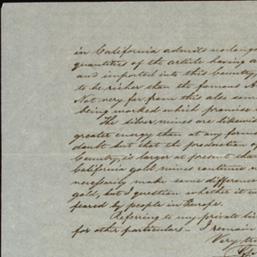 in California admits no longer
quantities of the article having a
and imported into this Country,
to be richer than the famous A
Not very far from this also som
being worked which promises
The silver mines are likewis
greater energy than at any forme
doubt but that the production of
Country, is larger at present than
California gold mines continue
necessarily make some difference
gold, but I question whether it
feared by people in Europe.
Referring to my private
for other particulars – I remain
Very